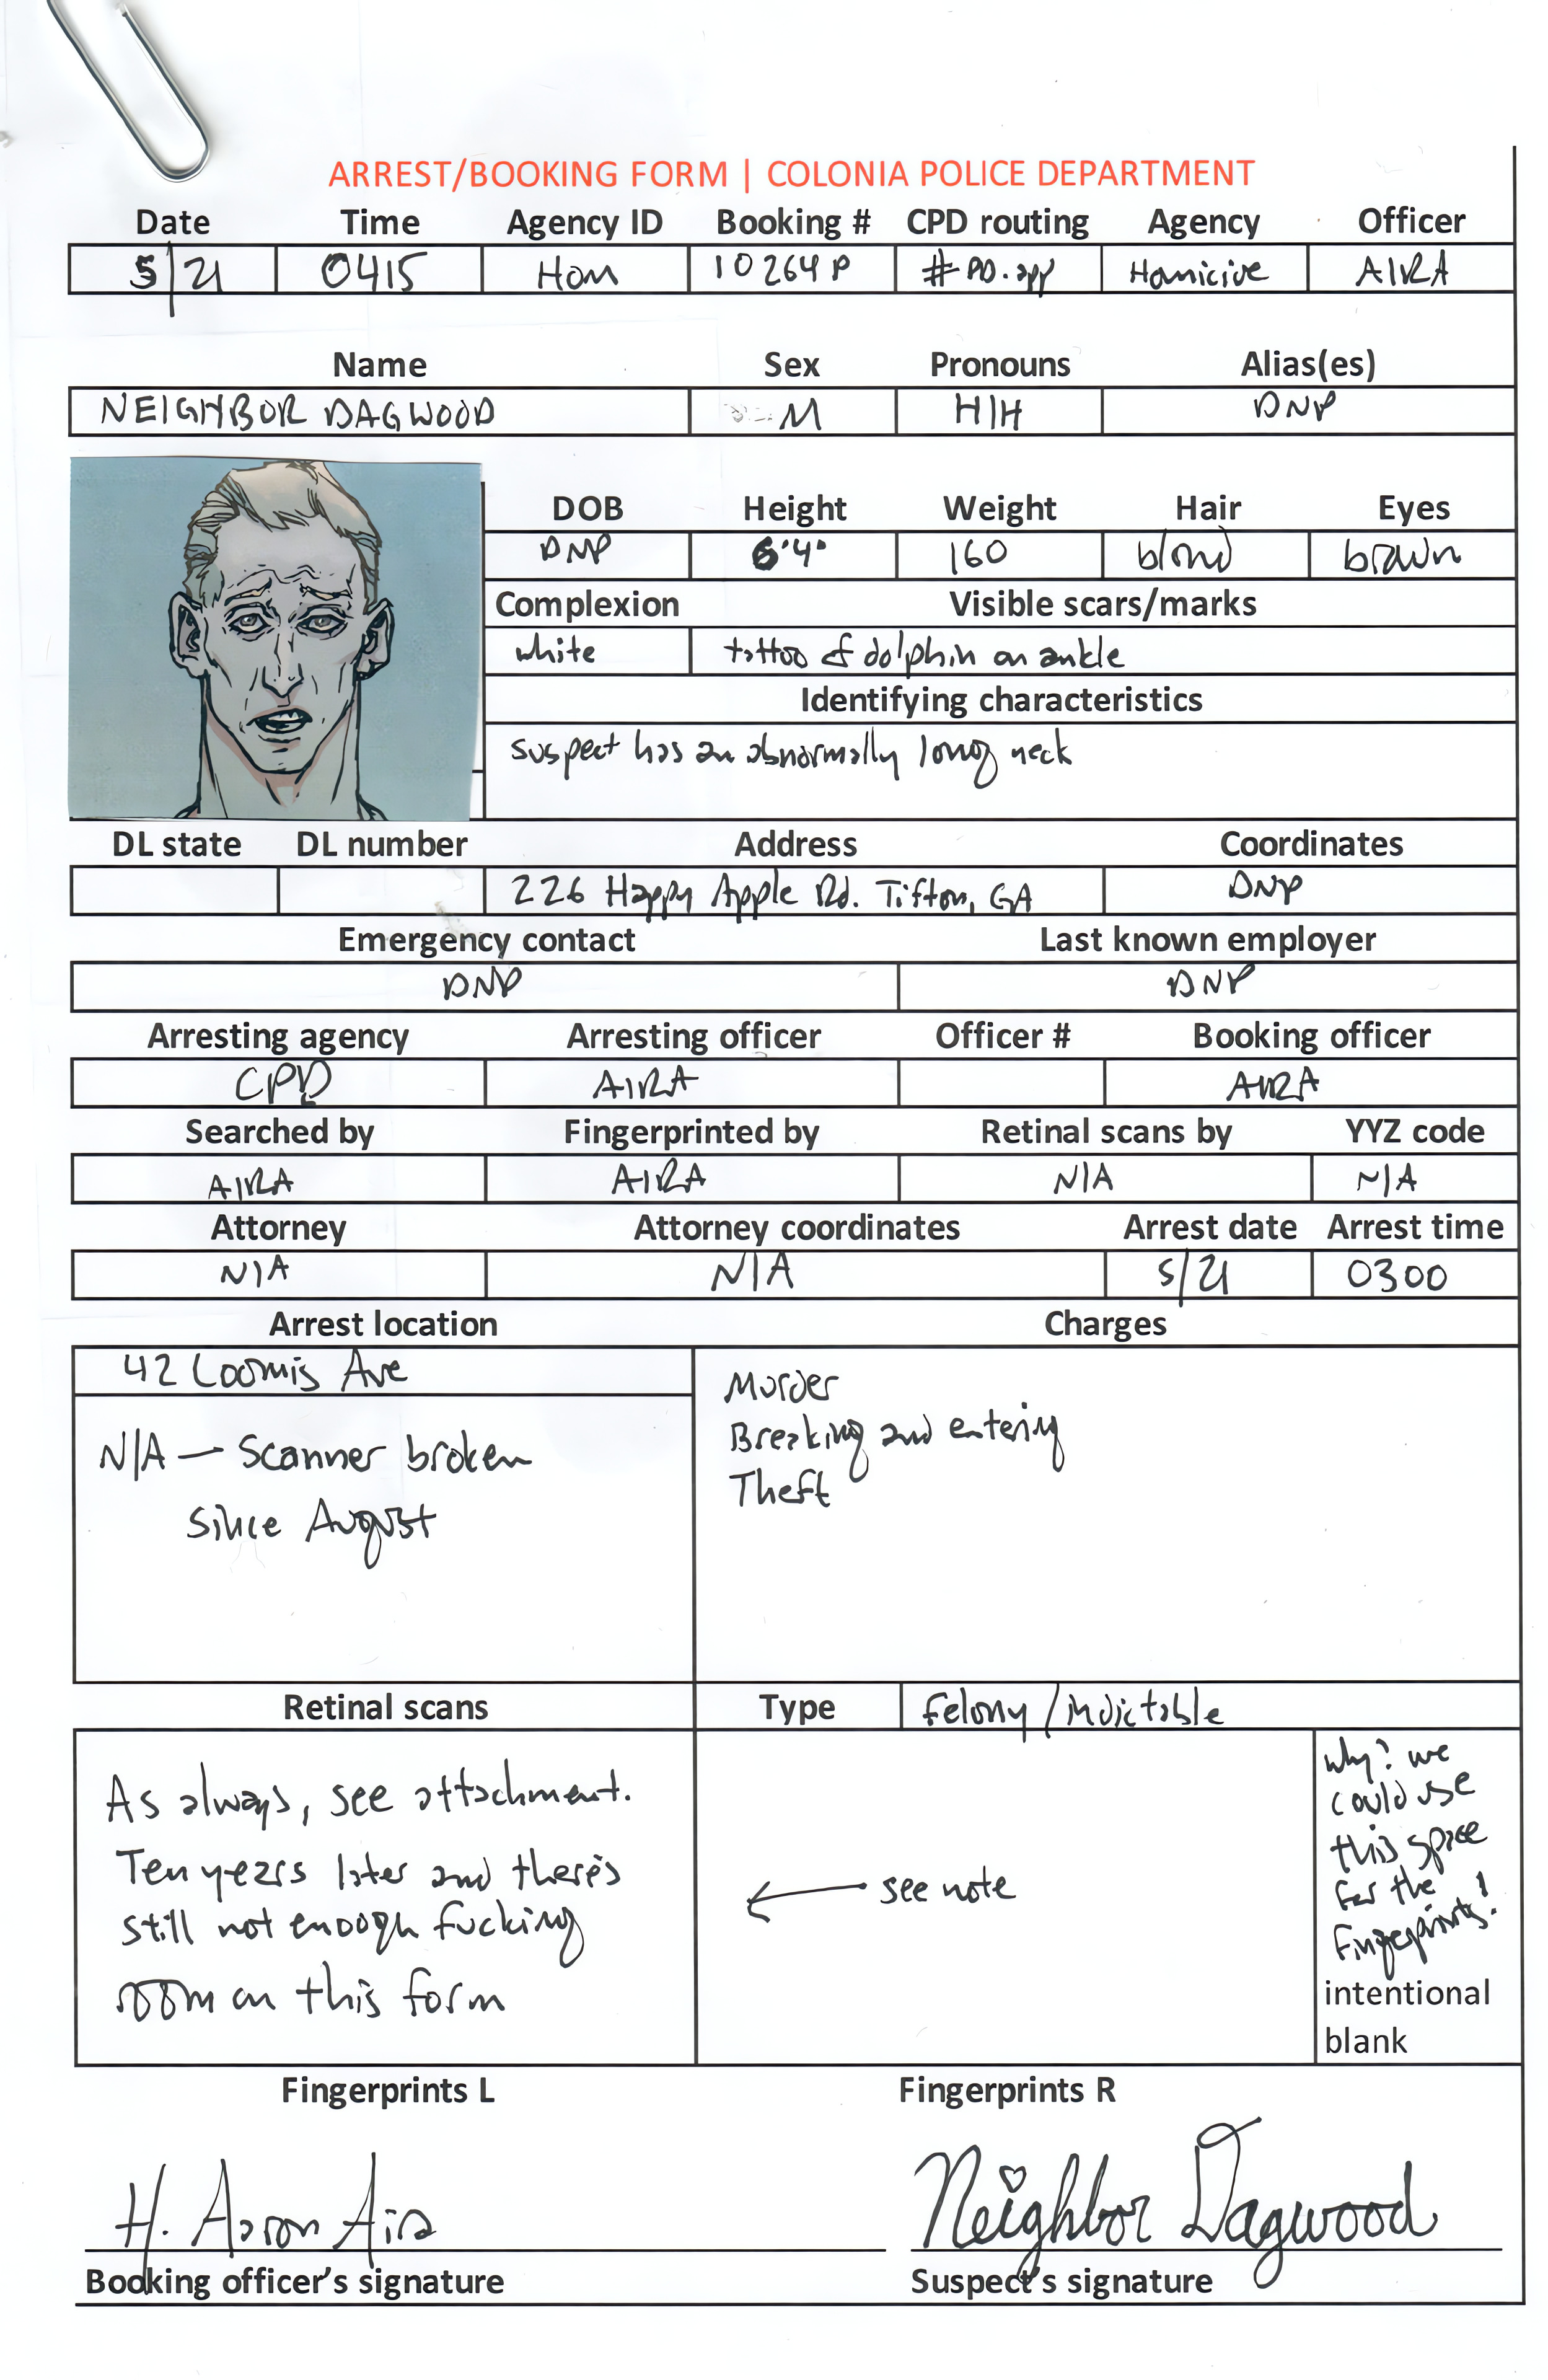 ARREST/BOOKING FORM | COLONIA POLICE DEPARTMENT
Date Time Agency ID Booking # CPD routing Agency Officer
5/21 0415 Hom 10264P #PD.app Homicide AIRA
Name Sex Pronouns Alias(es)
NEIGHBOR DAGWOOD M H/H DNP
DOB Height Weight Hair Eyes
DNP 6'4" 160 blond brown
Complexion Visible scars/marks
white tattoo of dolphin on ankle
Identifying characteristics
suspect has an abnormally long neck
DL state DL number Address Coordinates
226 Happy Apple Rd. Tifton, GA DNP
Emergency contact Last known employer
DNP DNP
Arresting agency Arresting officer Officer # Booking officer
CPD AIRA AIRA
Searched by Fingerprinted by Retinal scans by YYZ code
AIRA AIRA N/A N/A
Attorney Attorney coordinates Arrest date Arrest time
N/A N/A 5/21 0300
Arrest location Charges
42 Loomis Ave
Murder
Breaking and entering
Theft
N/A — Scanner broken
since August
Retinal scans Type Felony/indictable
As always, see attachment.
Ten years later and there's
still not enough fucking
room on this form
← see note
Why? we
could use
this space
for the
fingerprints!
intentional
blank
Fingerprints L Fingerprints R
H. Aaron Aira Neighbor Dagwood
Booking officer's signature Suspect's signature